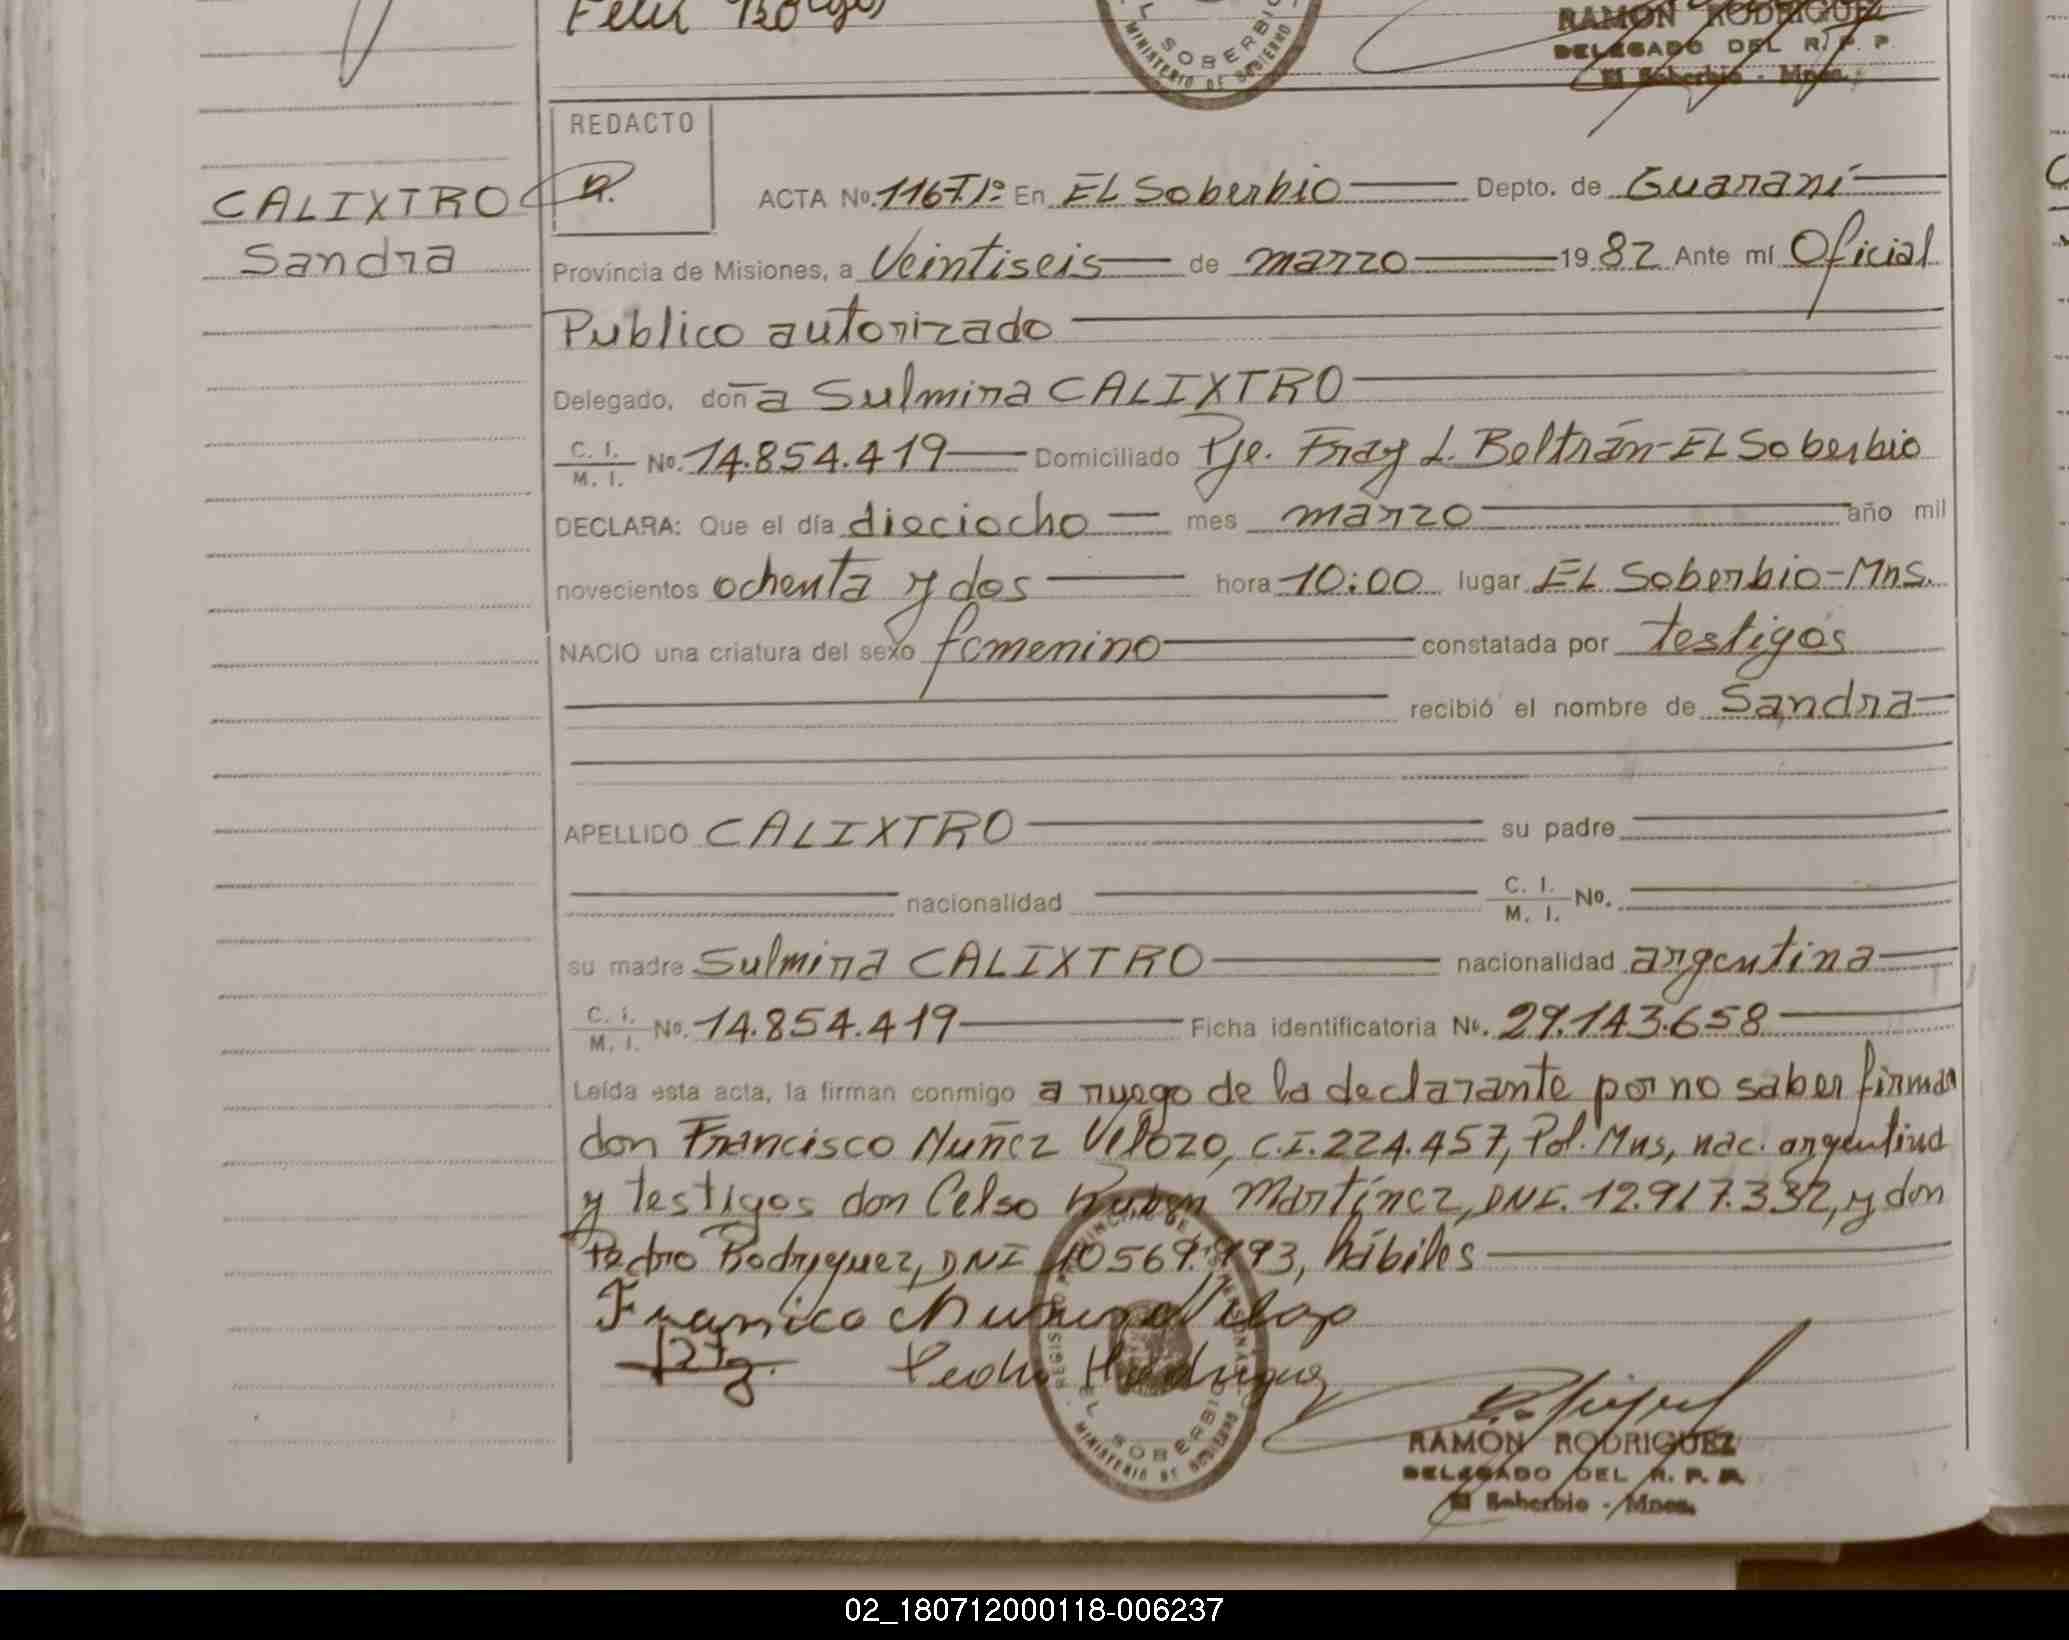 Felix Borges
EL SOBERBIO
MINISTERIO DE GOBIERNO
RAMON RODRIGUEZ
DELEGADO DEL R. P. P.
El Soberbio - Mnes.
REDACTO
CALIXTRO
Sandra
ACTA No. 116 T.1º En EL Soberbio Depto. de Guaraní
Provincia de Misiones, a Veintiseis de marzo 1982 Ante mí Oficial
Publico autorizado
Delegado, doña Sulmira CALIXTRO
C. I. / M. I. No. 14.854.419 Domiciliado Pje. Fray L. Beltrán-EL Soberbio
DECLARA: Que el día dieciocho mes marzo año mil
novecientos ochenta y dos hora 10:00 lugar EL Soberbio-Mns.
NACIO una criatura del sexo femenino constatada por testigos
recibió el nombre de Sandra
APELLIDO CALIXTRO su padre
nacionalidad C. I. / M. I. No.
su madre Sulmira CALIXTRO nacionalidad argentina
C. I. / M. I. No. 14.854.419 Ficha identificatoria No. 29.143.658
Leída esta acta, la firman conmigo a ruego de la declarante por no saber firmar
don Francisco Nuñez Velozo, C.I. 224.457, Pol. Mns, nac. argentina
y testigos don Celso Ruben Martínez, DNI. 12.917.332, y don
Pedro Rodryguez, DNI 10569.993, hábiles
Pedro Rodriguez
REGISTRO PROVINCIAL DE LAS PERSONAS
EL SOBERBIO
MINISTERIO DE GOBIERNO
RAMON RODRIGUEZ
DELEGADO DEL R. P. P.
El Soberbio - Mnes.
02_180712000118-006237